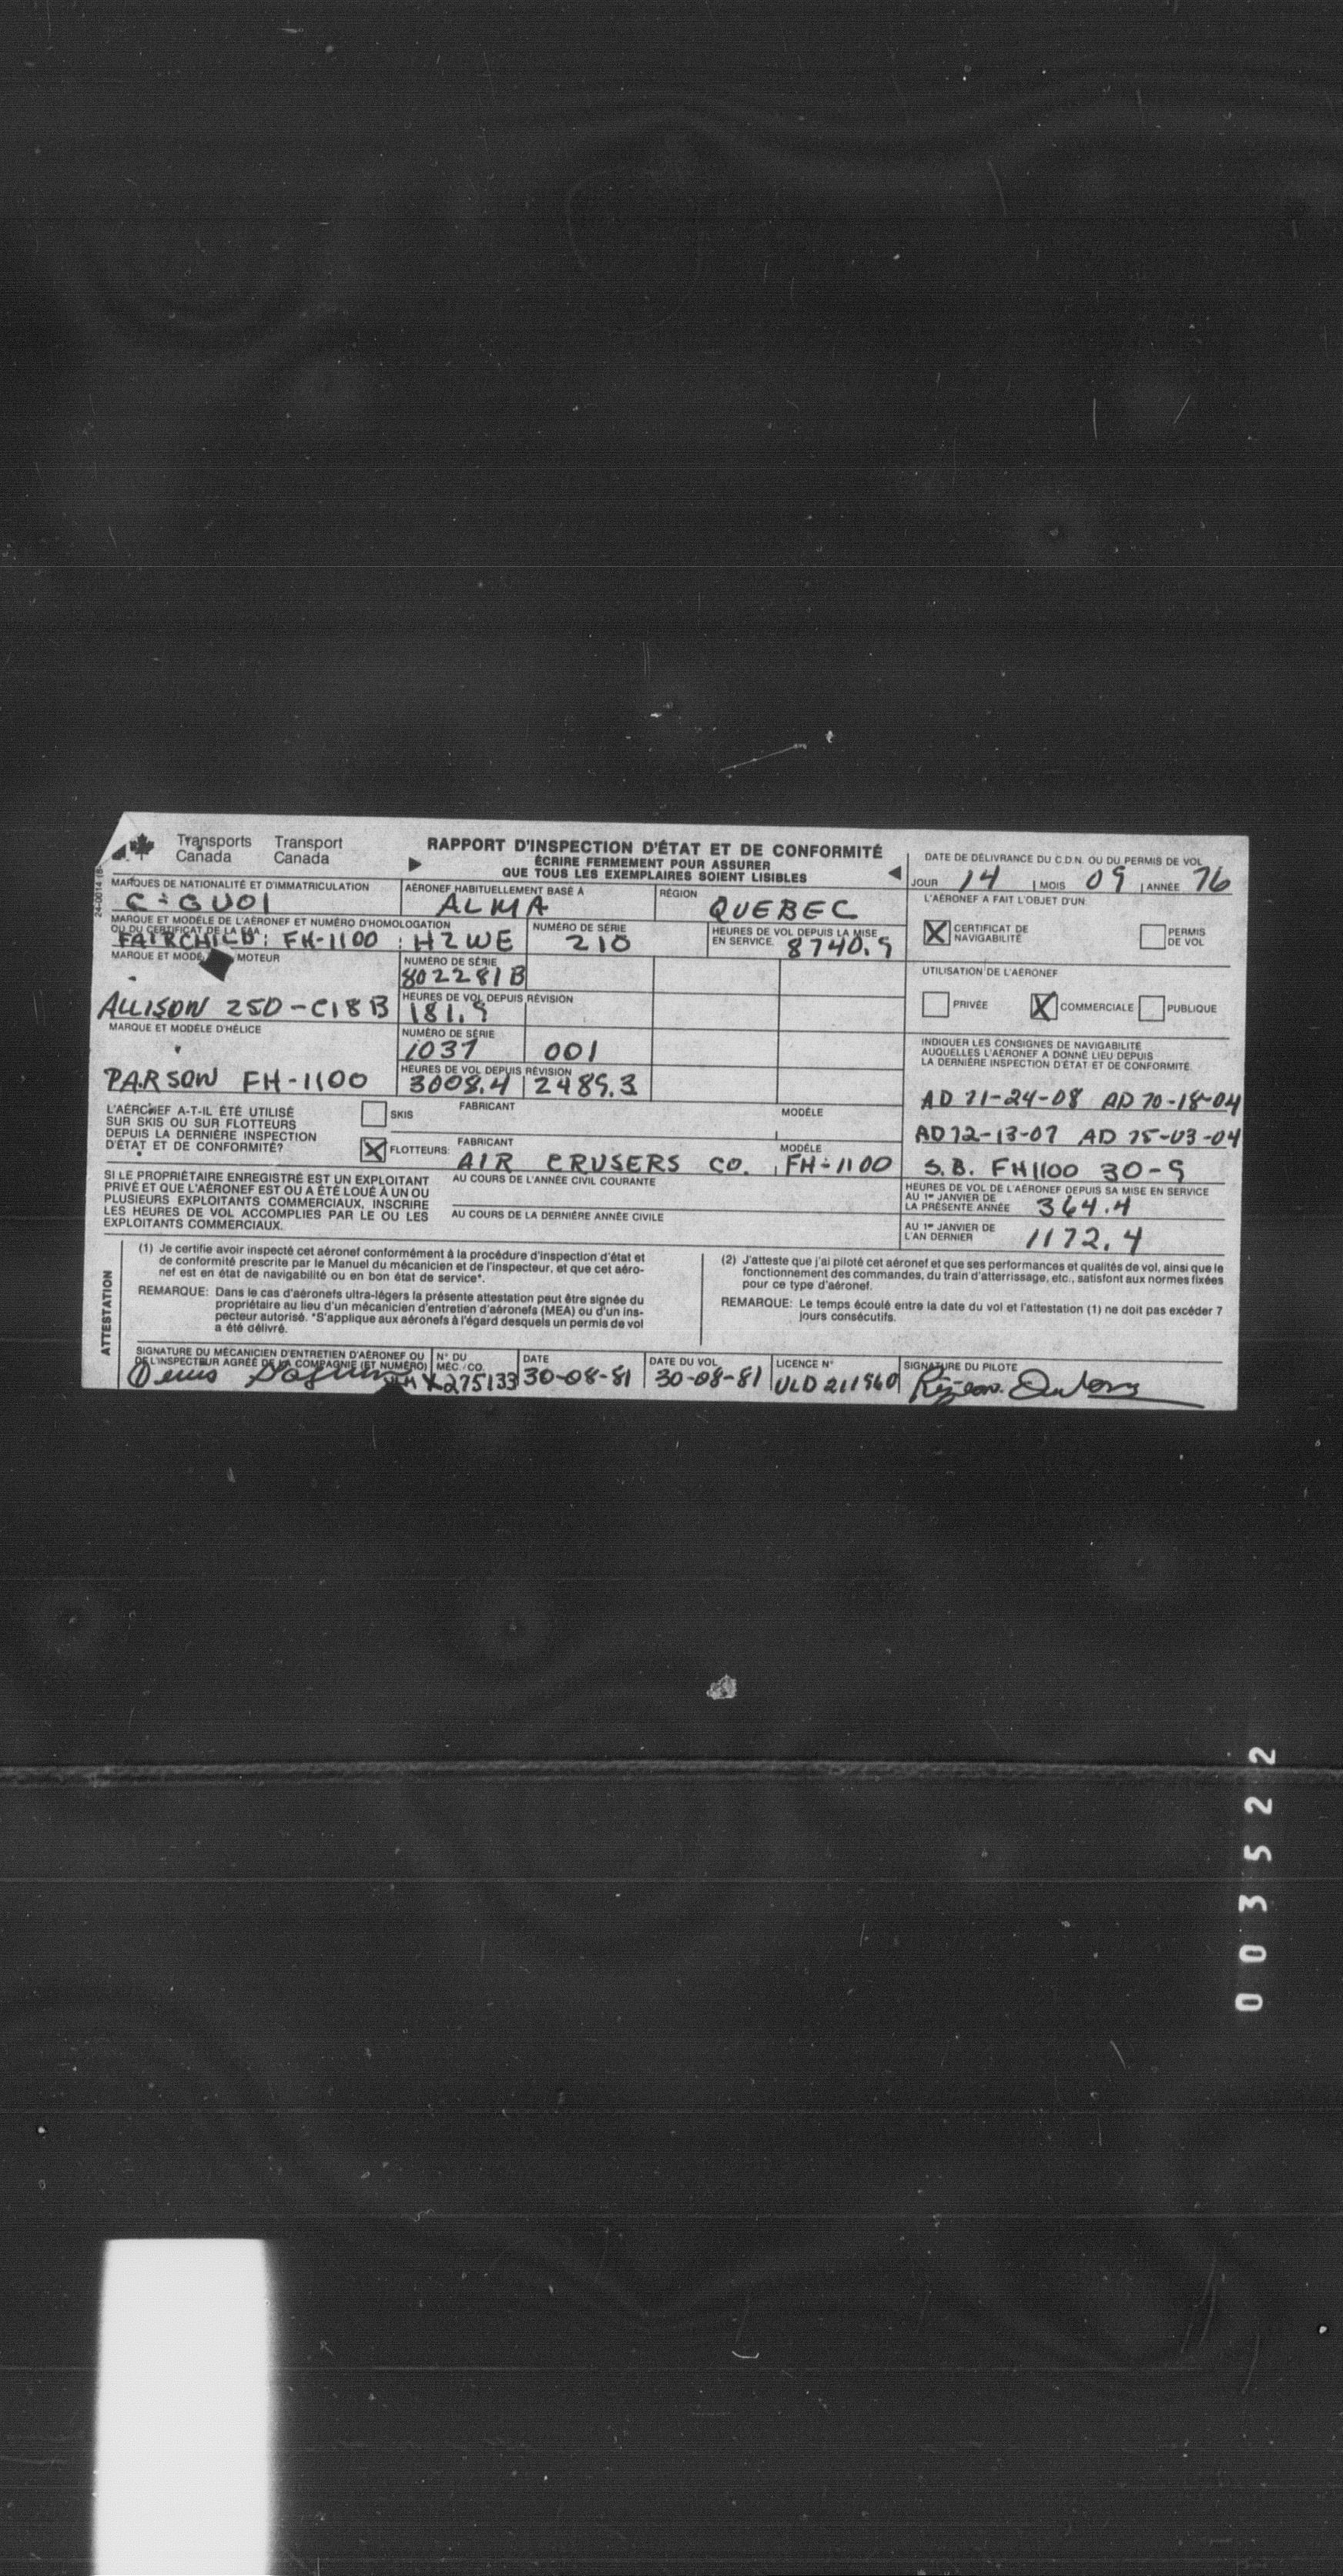 Transports Canada Transport Canada
RAPPORT D'INSPECTION D'ÉTAT ET DE CONFORMITÉ
ÉCRIRE FERMEMENT POUR ASSURER
QUE TOUS LES EXEMPLAIRES SOIENT LISIBLES
DATE DE DÉLIVRANCE DU C.D.N. OU DU PERMIS DE VOL
JOUR 14 MOIS 09 ANNÉE 76
MARQUES DE NATIONALITÉ ET D'IMMATRICULATION
C-GUOI
AÉRONEF HABITUELLEMENT BASÉ À
ALMA
RÉGION
QUEBEC
L'AÉRONEF A FAIT L'OBJET D'UN:
X CERTIFICAT DE NAVIGABILITÉ
PERMIS DE VOL
MARQUE ET MODÈLE DE L'AÉRONEF ET NUMÉRO D'HOMOLOGATION
OU DU CERTIFICAT DE LA FAA
FAIRCHILD: FH-1100 : H2WE
NUMÉRO DE SÉRIE
210
HEURES DE VOL DEPUIS LA MISE
EN SERVICE 8740.9
MARQUE ET MODÈ MOTEUR
ALLISON 250-C18B
NUMÉRO DE SÉRIE
802281B
HEURES DE VOL DEPUIS RÉVISION
181.9
UTILISATION DE L'AÉRONEF
PRIVÉE X COMMERCIALE PUBLIQUE
MARQUE ET MODÈLE D'HÉLICE
PARSON FH-1100
NUMÉRO DE SÉRIE
1037 001
HEURES DE VOL DEPUIS RÉVISION
3008.4 2489.3
INDIQUER LES CONSIGNES DE NAVIGABILITÉ
AUQUELLES L'AÉRONEF A DONNÉ LIEU DEPUIS
LA DERNIÈRE INSPECTION D'ÉTAT ET DE CONFORMITÉ
AD 71-24-08 AD 70-18-04
AD 72-13-07 AD 75-03-04
S.B. FH1100 30-9
L'AÉRONEF A-T-IL ÉTÉ UTILISÉ
SUR SKIS OU SUR FLOTTEURS
DEPUIS LA DERNIÈRE INSPECTION
D'ÉTAT ET DE CONFORMITÉ?
SKIS FABRICANT MODÈLE
X FLOTTEURS: FABRICANT MODÈLE
AIR CRUSERS CO. FH-1100
SI LE PROPRIÉTAIRE ENREGISTRÉ EST UN EXPLOITANT
PRIVÉ ET QUE L'AÉRONEF EST OU A ÉTÉ LOUÉ À UN OU
PLUSIEURS EXPLOITANTS COMMERCIAUX, INSCRIRE
LES HEURES DE VOL ACCOMPLIES PAR LE OU LES
EXPLOITANTS COMMERCIAUX.
AU COURS DE L'ANNÉE CIVIL COURANTE
AU COURS DE LA DERNIÈRE ANNÉE CIVILE
HEURES DE VOL DE L'AÉRONEF DEPUIS SA MISE EN SERVICE
AU 1er JANVIER DE
LA PRÉSENTE ANNÉE 364.4
AU 1er JANVIER DE
L'AN DERNIER 1172.4
ATTESTATION
(1) Je certifie avoir inspecté cet aéronef conformément à la procédure d'inspection d'état et
de conformité prescrite par le Manuel du mécanicien et de l'inspecteur, et que cet aéro-
nef est en état de navigabilité ou en bon état de service*.
REMARQUE: Dans le cas d'aéronefs ultra-légers la présente attestation peut être signée du
propriétaire au lieu d'un mécanicien d'entretien d'aéronefs (MEA) ou d'un ins-
pecteur autorisé. *S'applique aux aéronefs à l'égard desquels un permis de vol
a été délivré.
(2) J'atteste que j'ai piloté cet aéronef et que ses performances et qualités de vol, ainsi que le
fonctionnement des commandes, du train d'atterrissage, etc., satisfont aux normes fixées
pour ce type d'aéronef.
REMARQUE: Le temps écoulé entre la date du vol et l'attestation (1) ne doit pas excéder 7
jours consécutifs.
SIGNATURE DU MÉCANICIEN D'ENTRETIEN D'AÉRONEF OU
DE L'INSPECTEUR AGRÉÉ DE LA COMPAGNIE (ET NUMÉRO)
Denis
N° DU MÉC./CO.
X275133
DATE
30-08-81
DATE DU VOL
30-08-81
LICENCE N°
ULD 211960
SIGNATURE DU PILOTE
003522